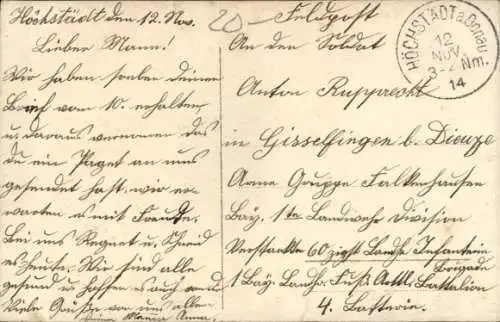 Höchstädt den 12. Nov.
Lieber Mann!
Wir haben soeben deinen
Brief vom 10. erhalten
u. daraus vernommen das
du ein Paget an uns
gesendet hast, wir er-
warten es mit Freude.
Bei uns Regnet u. Schneid
es Heute. Wir sind alle
gesund u. hoffen es auch von dir
Viele Grüße von uns allen
deine Anna.
20
Feldpost
An den Soldat
Anton Rupprecht
in Gisselfingen b. Dieuze
Armee Gruppe Falkenhausen
Bay. 1te Landwehr Division
Verstärkte 60zigst Landw. Infanterie
Brigade
1 Bay. Landw. Fuß Artl. Battalion
4. Batterie.
HÖCHSTÄDT a. Donau
12
NOV.
Nm.
14